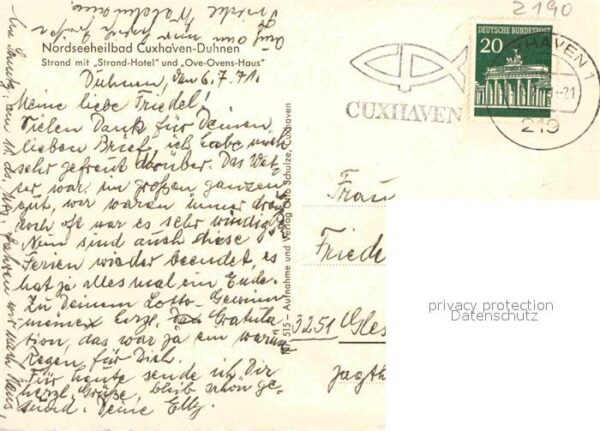 2190
Nordseeheilbad Cuxhaven-Duhnen
Strand mit „Strand-Hotel" und „Ove-Ovens-Haus"
Duhnen, den 6.7.71.
Meine liebe Friedel!
Vielen Dank für Deinen
lieben Brief, ich habe mich
sehr gefreut darüber. Das Wet-
ter war im großen ganzen
gut, wir waren immer
doch oft war es sehr windig.
Nun sind auch diese
Ferien wieder beendet, es
hat ja alles mal ein Ende.
Zu Deinem Lotto-Gewinn
meinen herzl. Gratula-
tion, das war ja ein warmer
Regen für Dich.
Für heute sende ich Dir
herzl. Grüße, bleib schön ge-
sund. Deine Elly.
515 - Aufnahme und Verlag Otto Schulze, Cuxhaven
CUXHAVEN
DEUTSCHE BUNDESPOST
20
CUXHAVEN 1
-21
219
Frau
Friede
3251
privacy protection
Datenschutz